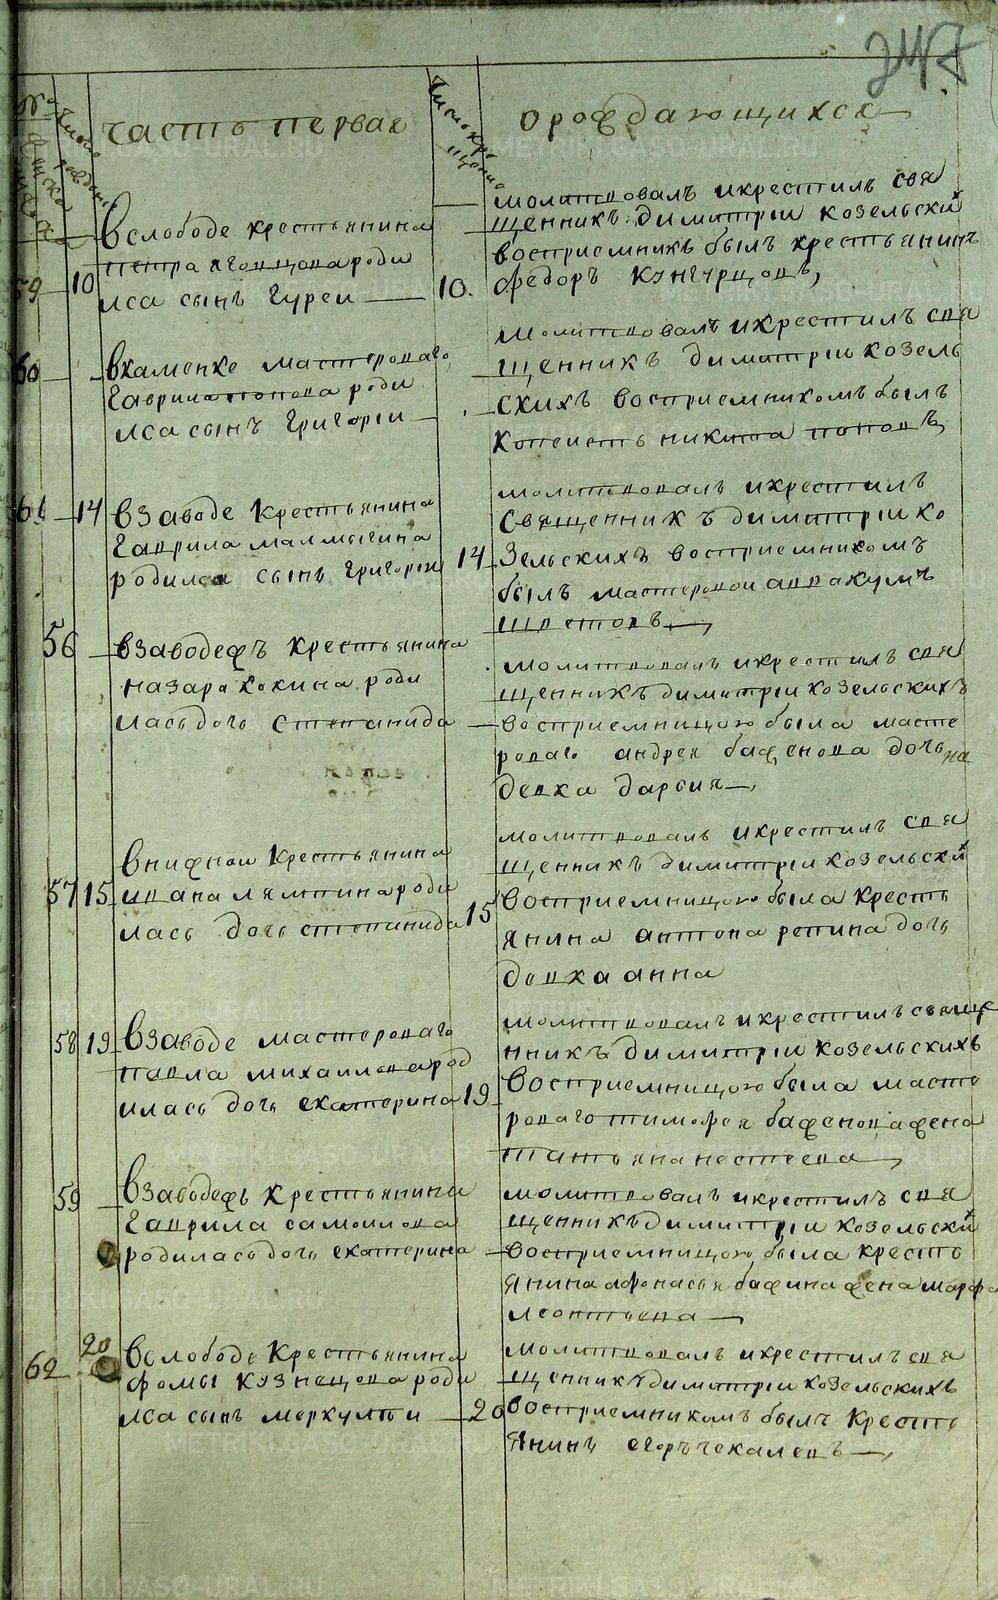 247
часть первая
ораждающихся
вслободе крестьянина
петра
роди
59 10
лса сынъ гуреи
10.
молитвовалъ икрестилъ свя
щенникъ димитріи козельский
восприемникъ былъ крестьянинъ
федоръ кунгурцовъ,
60
вкаменке мастероваго
гаврила попова роди
лса сынъ григореи
молитвовалъ икрестилъ свя
щенникъ димитріи козель
скихъ восприемникомъ былъ
копеистъ никита поповъ,
61 14
взаводе крестьянина
гаврила малмыгина
родился сынъ григореи
14
молитвовалъ икрестилъ
священникъ димитріи ко
зельскихъ восприемникомъ
былъ мастеровои аввакумъ
шветовъ,
56
взаводежъ крестьянина
назара кокина роди
лась дочь степанида
молитвовалъ икрестилъ свя
щенникъ димитріи козельскихъ
восприемницою была масте
роваго андрея баженова дочь
девка дарья,
57 15
внижнои крестьянина
ивана ляптина роди
лась дочь степанида
15
молитвовалъ икрестилъ свя
щенникъ димитріи козельский
восприемницою была кресть
янина антона репина дочь
девка анна
58 19
взаводе мастероваго
павла михаилова род
илась дочь екатерина
19
молитвовалъ икрестилъ свяще
нникъ димитріи козельскихъ
восприемницою была масте
роваго тимофея баженова жена
татьяна нестеева,
59
взаводежъ крестьянина
гаврила самоилова
родилась дочь екатерина
молитвовалъ икрестилъ свя
щенникъ димитріи козельский
восприемницою была кресть
янина афонасья бажина жена марфа
леонтьева
62 20
вслободе крестьянина
фомы кузнецова роди
лса сынъ меркулъи
20
молитвовалъ икрестилъ свя
щенникъ димитріи козельскихъ
восприемникомъ былъ кресть
янинъ егоръ чекалевъ,